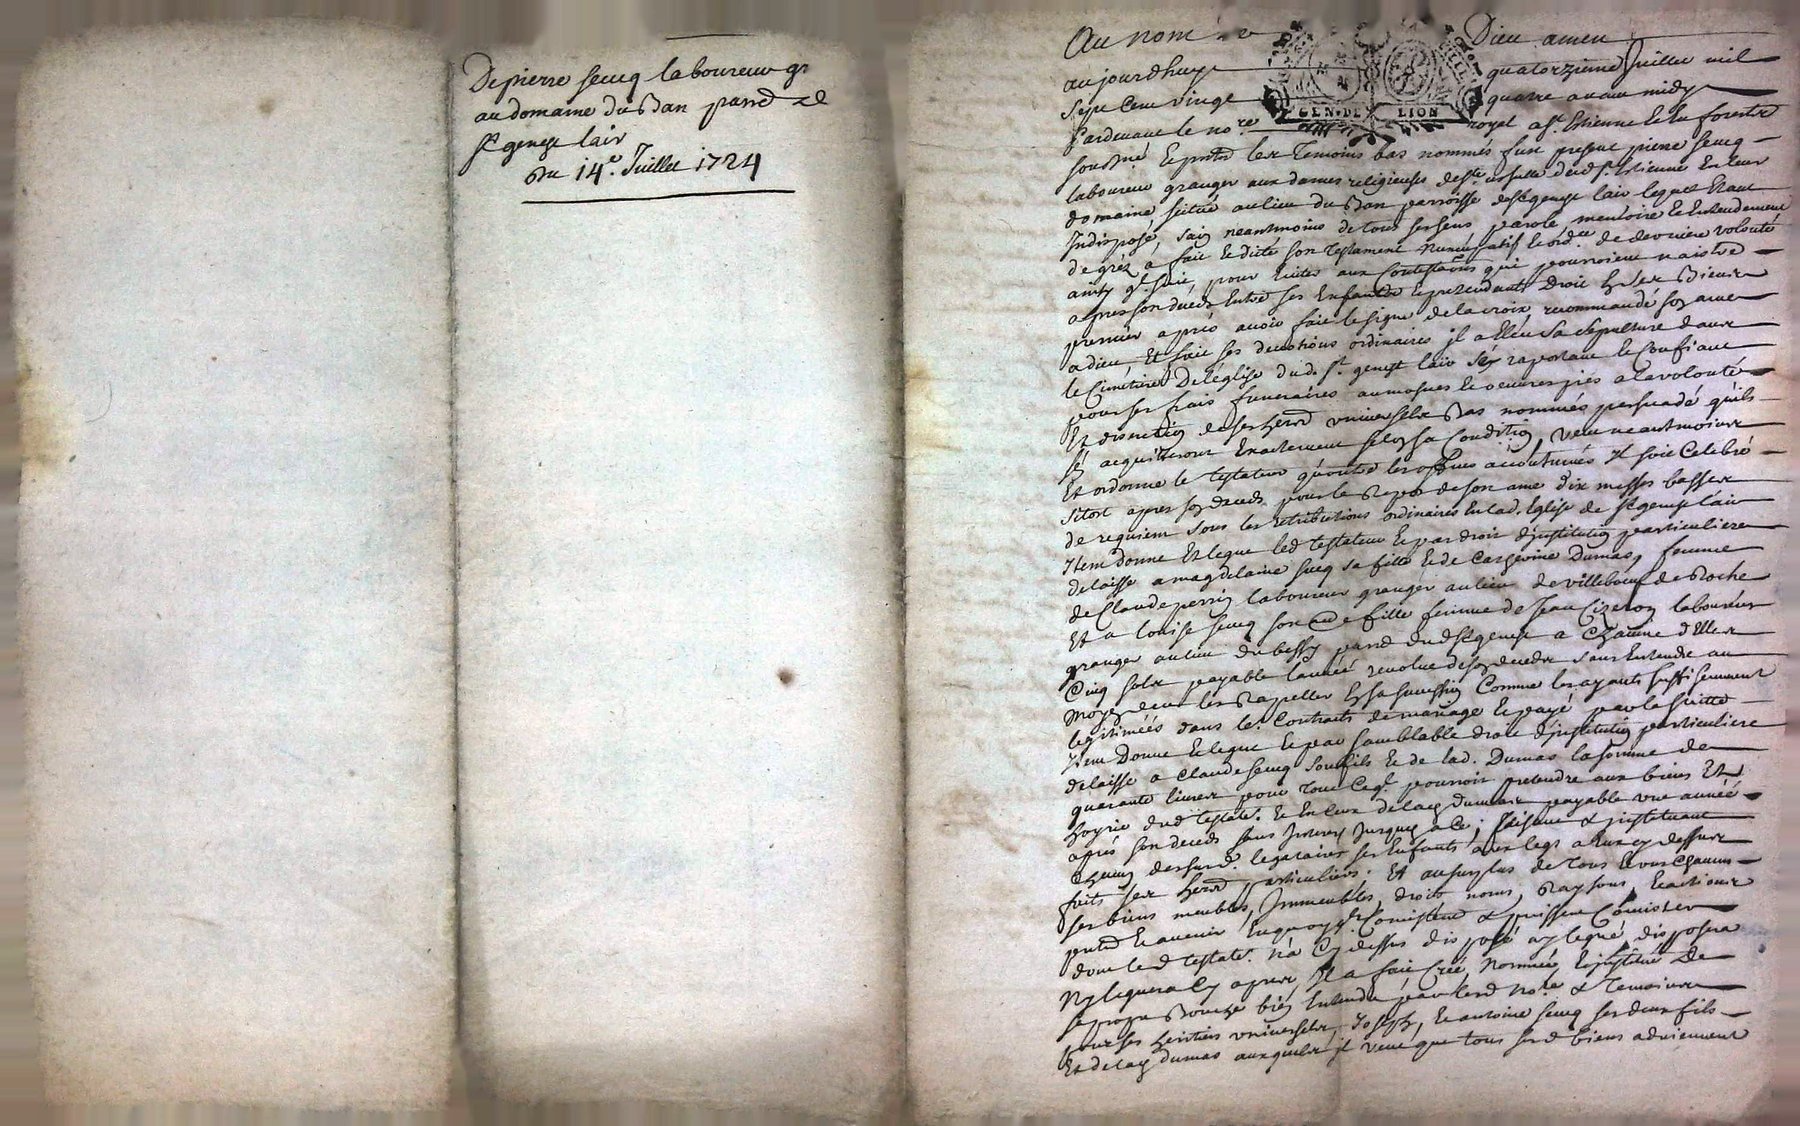 De pierre seucq laboureur gr
au domaine du Ban parre de
st genest lair
Du 14e. Juillet 1724
Au nom de Dieu amen
aujourdhuy quatorzieme Juillet mil
sept cent vingt quatre avant midy
pardevant le nore. royal a st Estienne en forestz
soussné et pnts les temoins bas nommés fut present pierre seucq
laboureur granger aux dames religieuses de ste ursulle dud st Estienne en leur
domaine scitué au lieu du Ban parroisse de st genest lair lequel Etant
Indisposé, sain neantmoins de tous ses sens parole, memoire et Entendement
de gréz a fait et dicté son testament nuncupatif et ordce. de derniere volonté
ainsy q. suit, pour Eviter aux Contestaons qui pourroient naistre
apres son decedz Entre ses Enfants et pretendants Droit En ses Biens
premier aprés avoir fait le signe de la croix, recommandé son ame
a dieu Et fait ses devotions ordinaires il a Elleu sa sepulture dans
le Cimetiere De l'église dud. st. genest lair s'en raportant et Confiant
pour ses frais funeraires aumosnes et oeuvres pies a la volonté
Et discretion de ses herrs universels Bas nommés persuadé qu'ils
s'en acquitteront Exactement selon sa Condition, veut neantmoins
Et ordonne le testateur qu'outre les offices accoutumés Il soit Celebré
sitost apres son decedz pour le Repos de son ame dix messes basses
de requiem sous les retributions ordinaires En lad. Eglise de st genest lair
Item donne Et legue led testateur et par droit d'institution particuliere
delaisse a magdelaine seucq sa fille et de Catherine Dumas, femme
de Claude perrin laboureur granger au lieu de villebœuf de Roche
Et a louise seucq son aue fille femme de Jean Cizeron laboureur
granger au lieu du bessy parre dud st genest a Chacune d'Elles
Cinq sols payable l'année revolue de son decedz sans Entendre au
moyen de ce les Rapeller En sa succession Comme les ayants suffisemment
legitimées dans les Contrats de mariage et payé par la suitte
Item Donne et legue et par semblable droit d'institution particuliere
delaisse a claude seucq son fils et de lad. Dumas la somme de
quarante livres pour tout Ce q. pourroit pretendre aux biens Et
hoyrie dud testatr. et En Ceux de lad dumas payable une année
aprés son decedz sans Interest Jusques a Ce; faisant & instituant
Chacun desd. legataires ses Enfants aux legs a Eux cy dessus
faits ses herrs particuliers. Et au surplus de tous Et uns Chacuns
ses biens meubles, Immeubles, droits noms, Raysons, et actions
pnts et avenir En quoy q. Consistent & puissent Consister
dont led testatr. n'a Cy dessus disposé ny legué disposera
ny leguera Cy apres, Il a fait Créé, Nommé, et institué De
sa propre Bouche bien Entendu par led nore & temoins
pour ses heritiers universels, Joseph, et antoine seucq ses deux fils
Et de lad dumas auxquels il veut que tous sesd biens adviennent